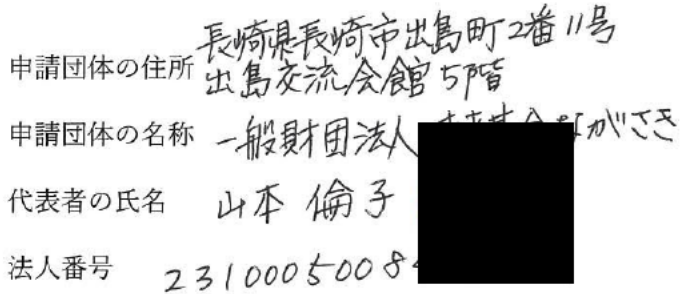 申請団体の住所 長崎県長崎市出島町2番11号
出島交流会館5階
申請団体の名称 一般財団法人 ながさき
代表者の氏名 山本 倫子
法人番号 2310005008